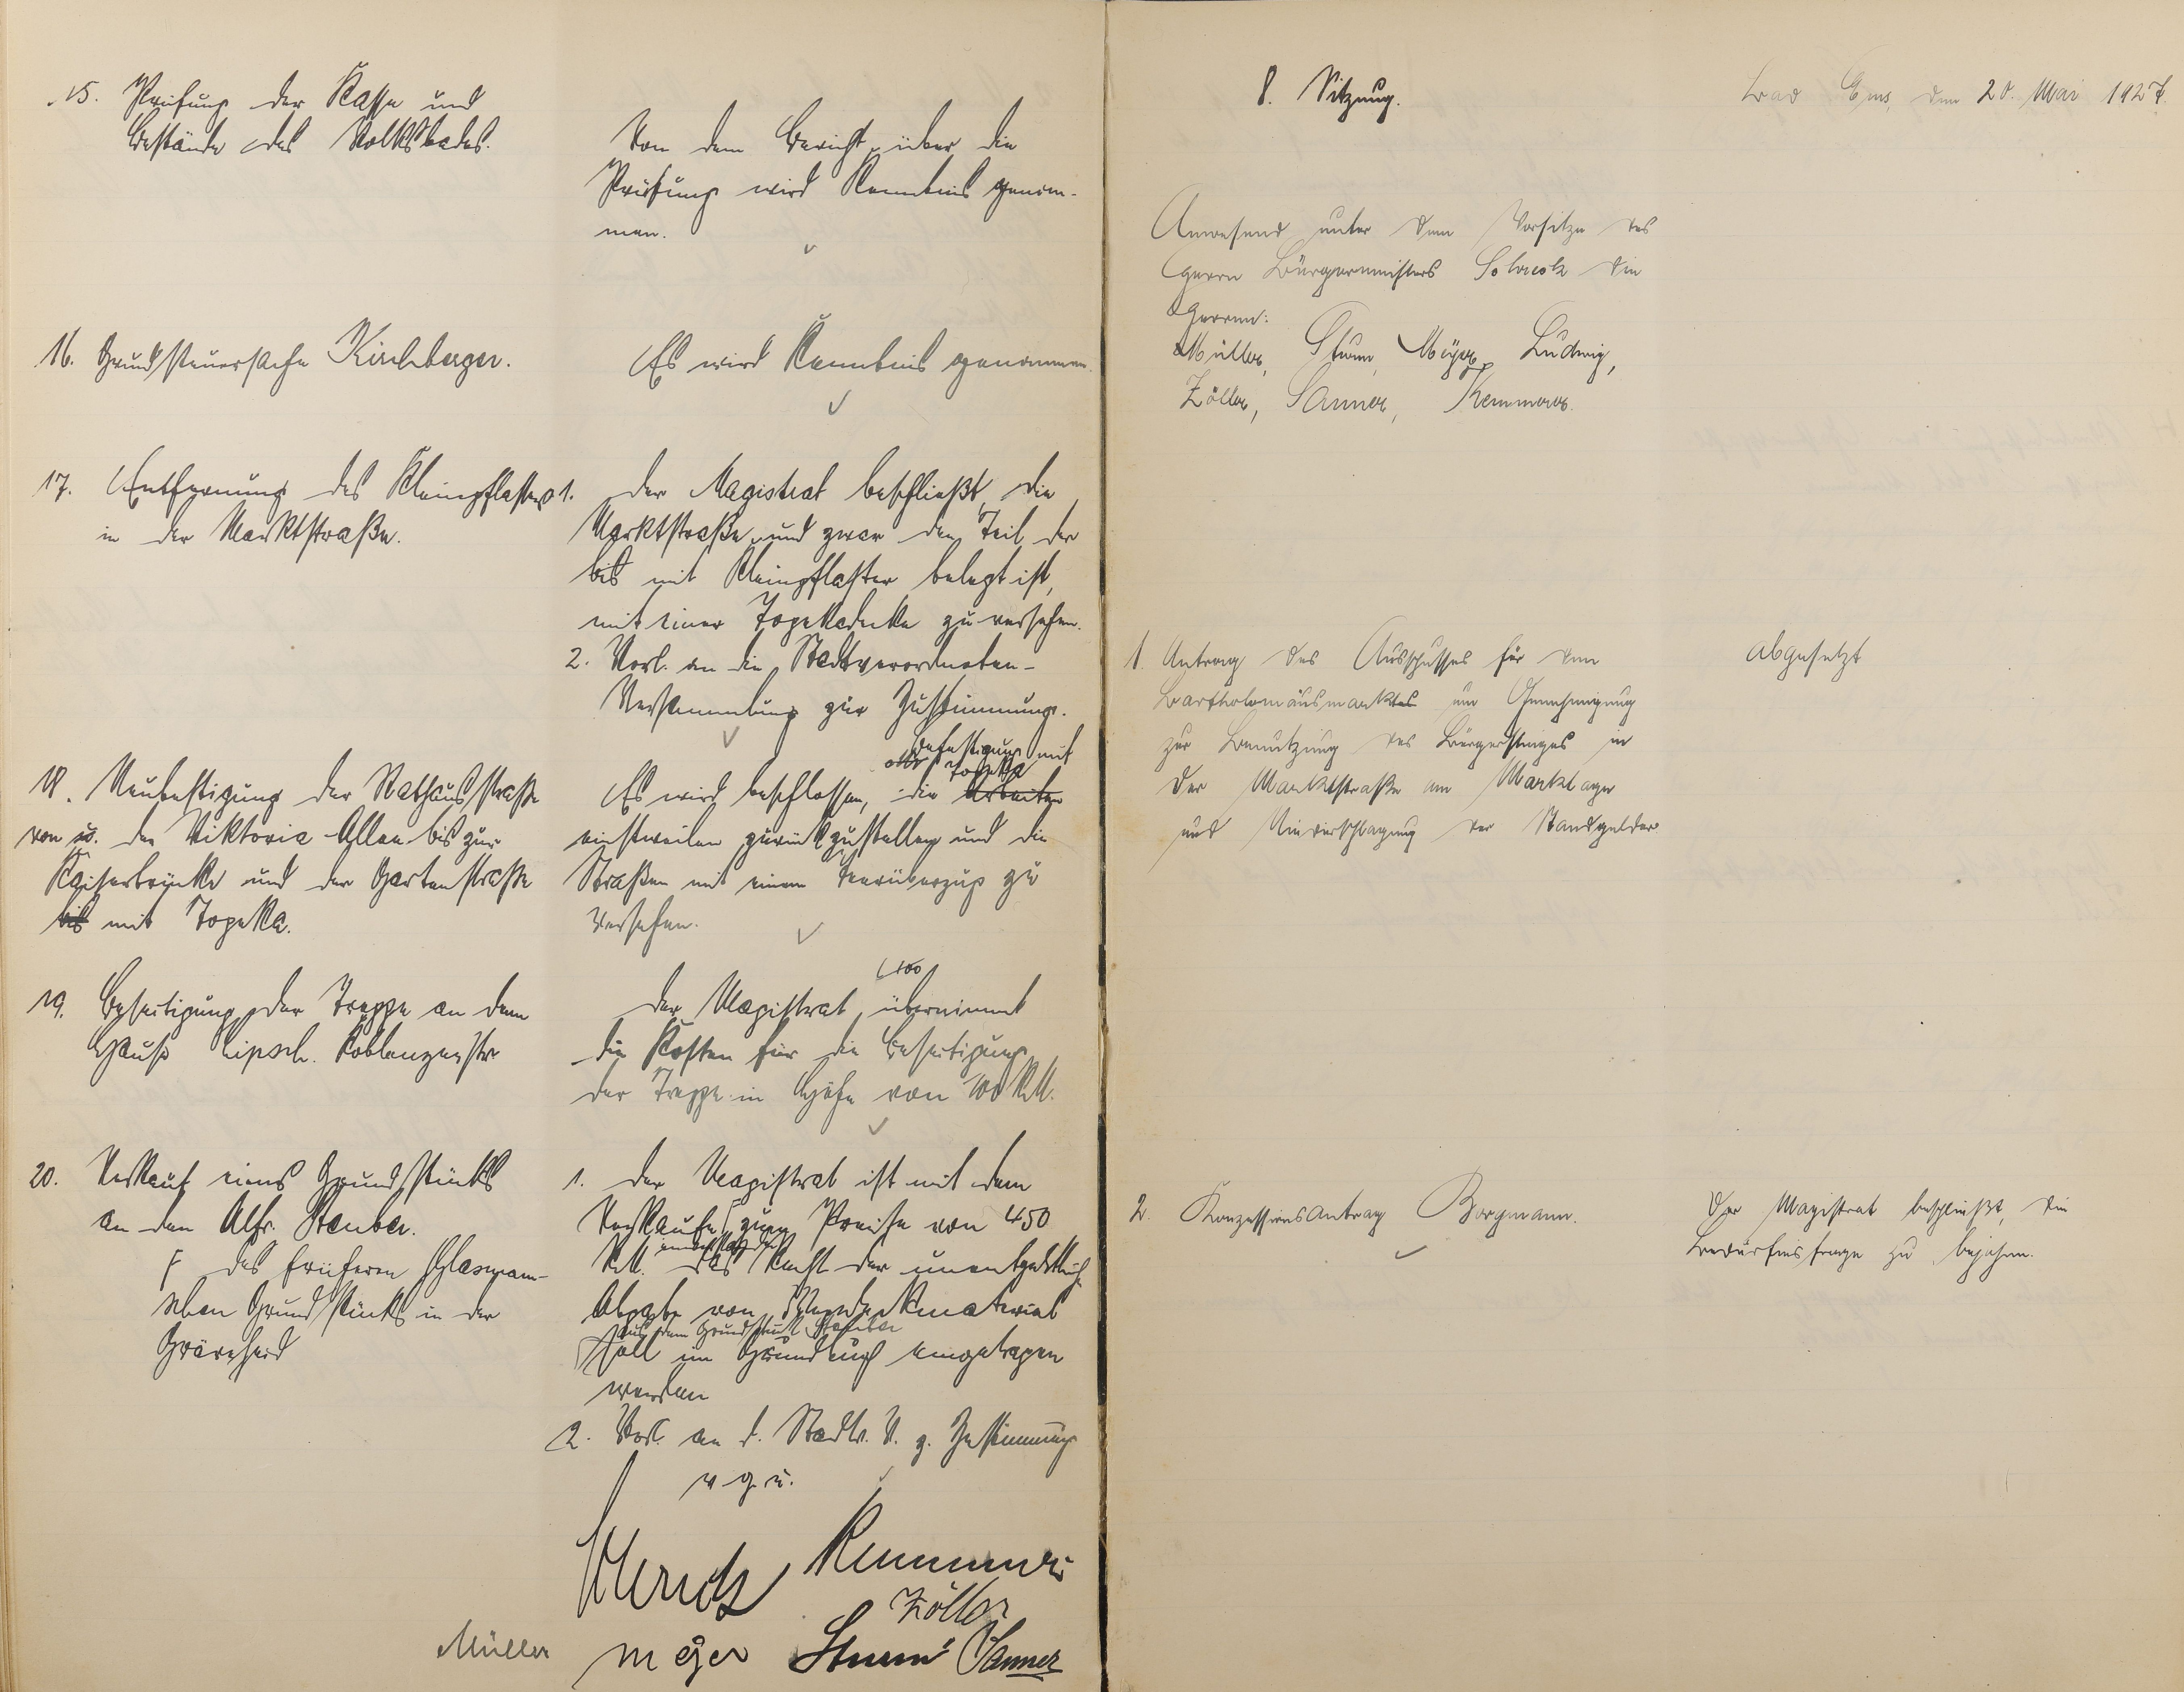 15. Prüfung der Kasse und
Bestände des Volksbades.
Von dem Bericht über die
Prüfung wird Kenntnis genom-
men.
16. Grundsteuersache Kirchberger.
Es wird Kenntnis genommen.
17. Entfernung des Kleinpflasters
in der Marktstraße.
1. Der Magistrat beschließt, die
Marktstraße und zwar den Teil der
bis mit Kleinpflaster belegt ist,
mit einer Topekadecke zu versehen.
2. Vorl. an die Stadtverordneten-
Versammlung zur Zustimmung.
18. Neubefestigung der Rathausstraße
von der Viktoria-Allee bis zur
Kaiserbrücke und der Gartenstraße
bis mit Topeka.
Befestigung mit
Topeka
Es wird beschlossen, die Arbeiten
einstweilen zurückzustellen und die
Straßen mit einem Teerüberzug zu
versehen.
19. Beseitigung der Treppe an dem
Hause Lipsch. Koblenzerstr.
Der Magistrat übernimmt
die Kosten für die Beseitigung
der Treppe in Höhe von 100 RM.
20. Verkauf eines Grundstücks
an den Alfr. Stauber.
F des früheren Glasmann-
schen Grundstücks in der
1. Der Magistrat ist mit dem
Verkaufe zum Preise von 450
RM. Das Recht der unentgeltlichen
Abgabe von Wegedeckmaterial
aus dem Grundstück Stauber
soll im Grundbuch eingetragen
werden
2. Vorl. an d. Stadtv. V. z. Zustimmung
v. g. u.
Kemmerer
Zöller
Müller
Meyer Sturm Sanner
8. Sitzung.
Bad Ems, den 20. Mai 1927.
Anwesend unter dem Vorsitze des
Herrn Bürgermeisters Schreck die
Herren:
Müller, Sturm, Meyer, Ludwig,
Zöller, Sanner, Kemmerer.
1. Antrag des Ausschusses für den
Bartholomäusmarktes um Genehmigung
zur Benutzung des Bürgersteiges in
der Marktstraße am Markttage
und Niederschlagung der Standgelder.
abgesetzt
2. Konzessionsantrag Borgmann.
Der Magistrat beschließt, die
Bedürfnisfrage zu bejahen.